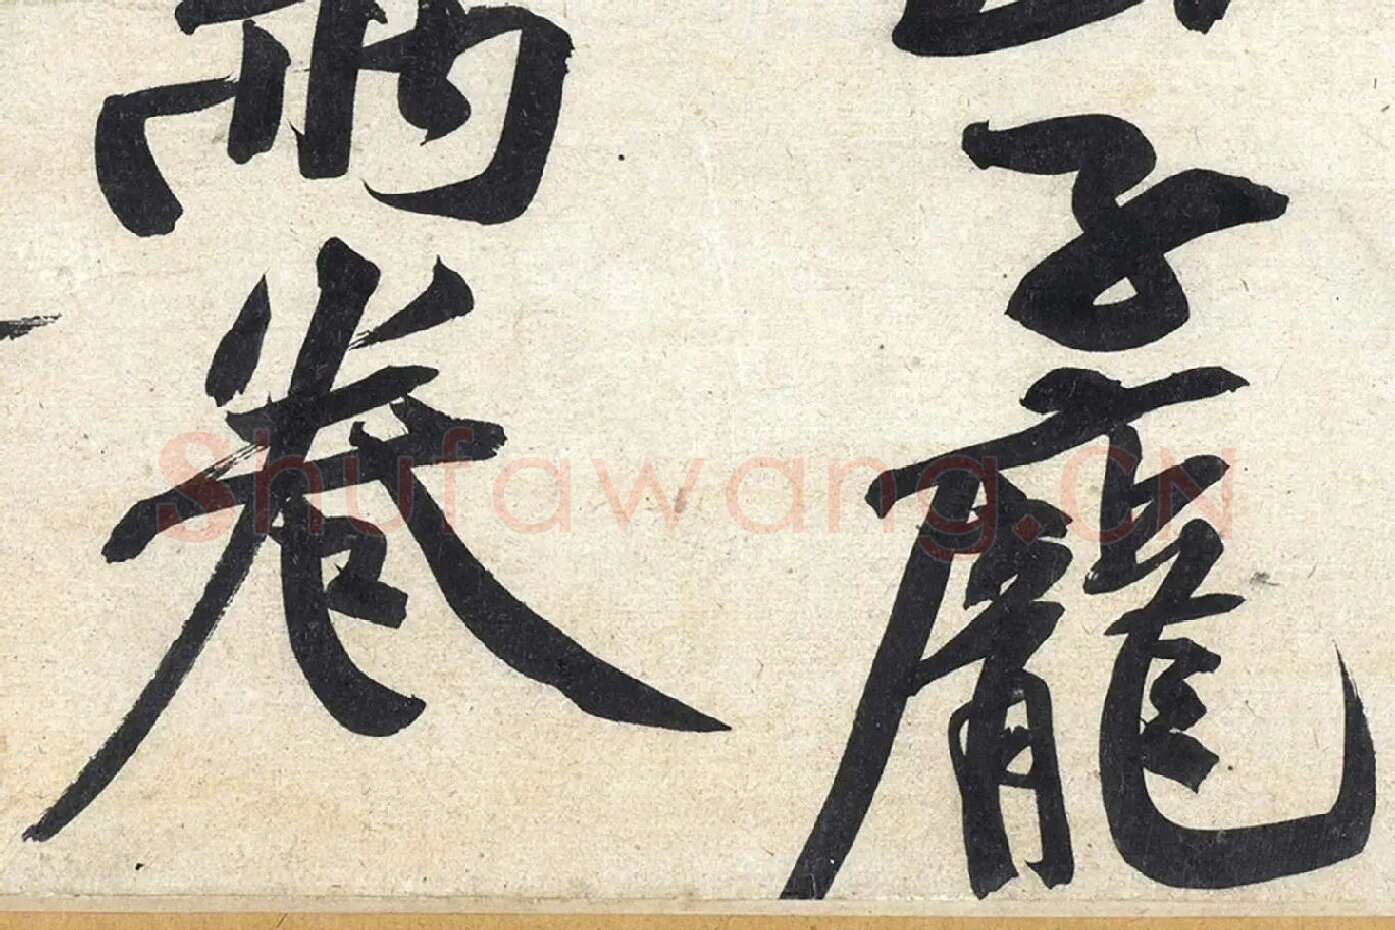 子龐
兩卷
Shufawang.CN